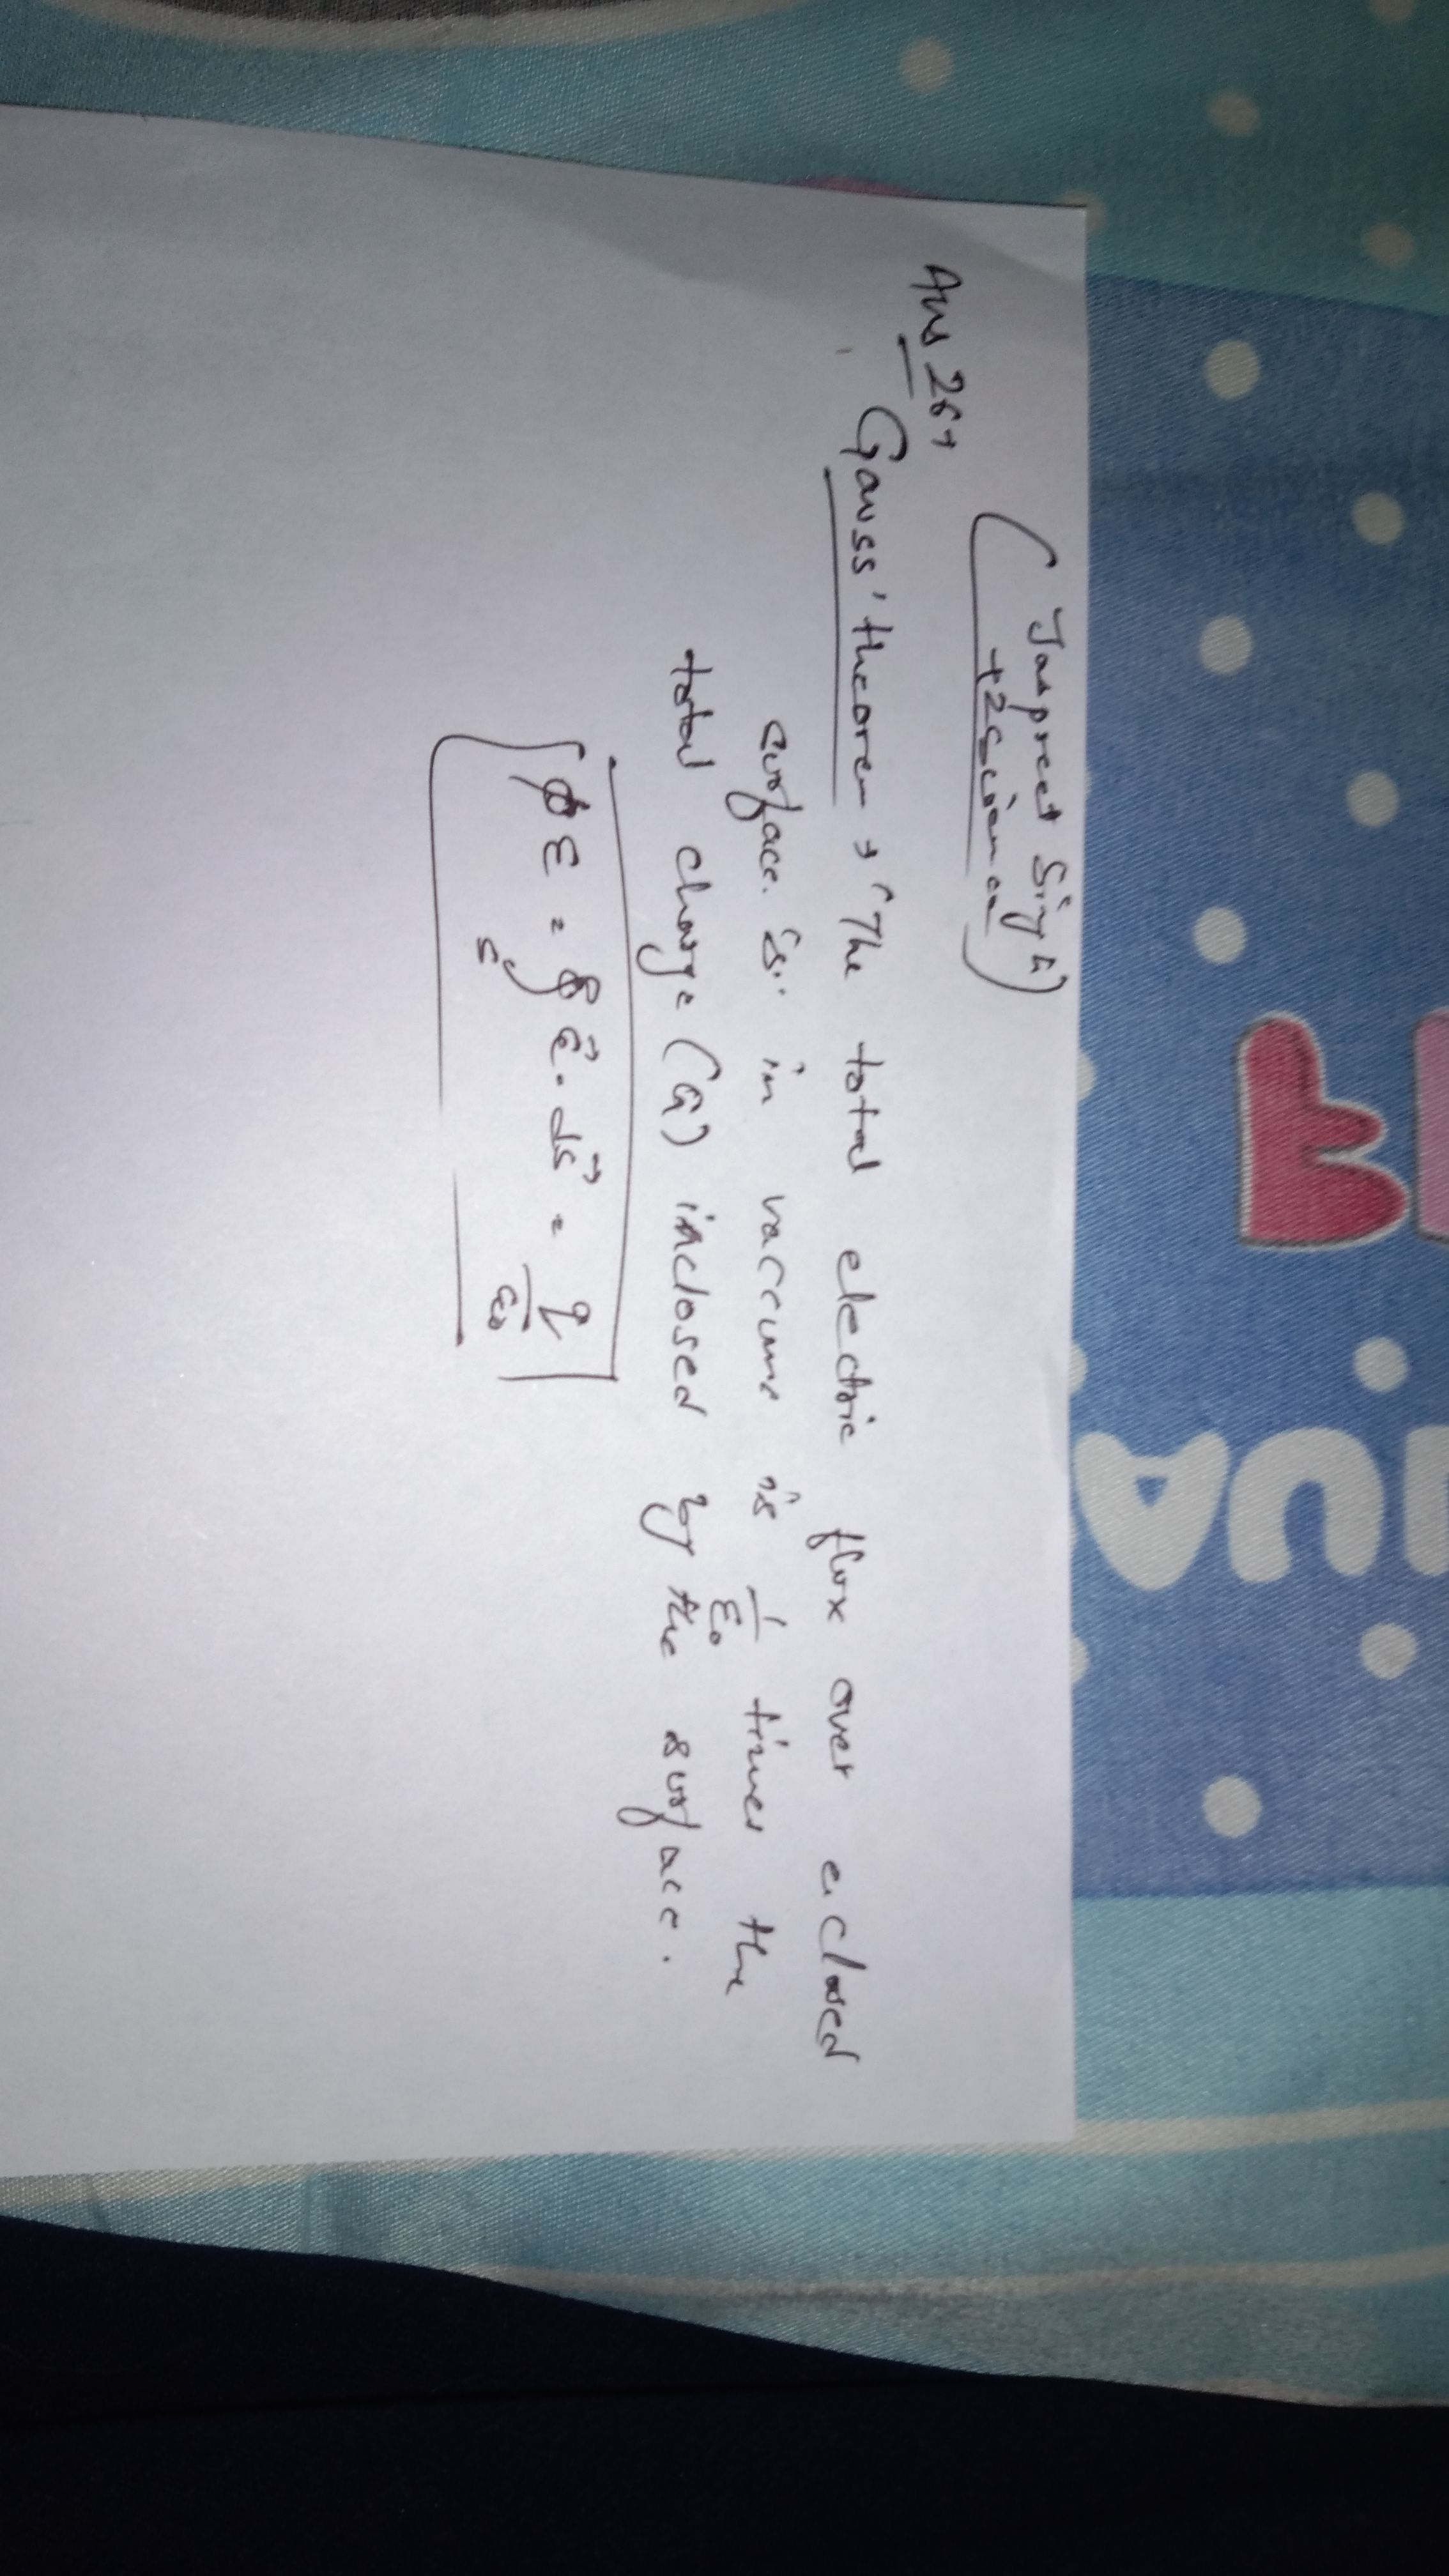 (Jaspreet Singh
+2 Science)
Ans 26→
Gauss' theorem → 'The total electric flux over a closed
surface 'S' in vaccume is 1/ε₀ times the
total charge (Q) inclosed by the surface.
ϕE = ∮ₛ E⃗ . dS⃗ = q/ε₀
UA